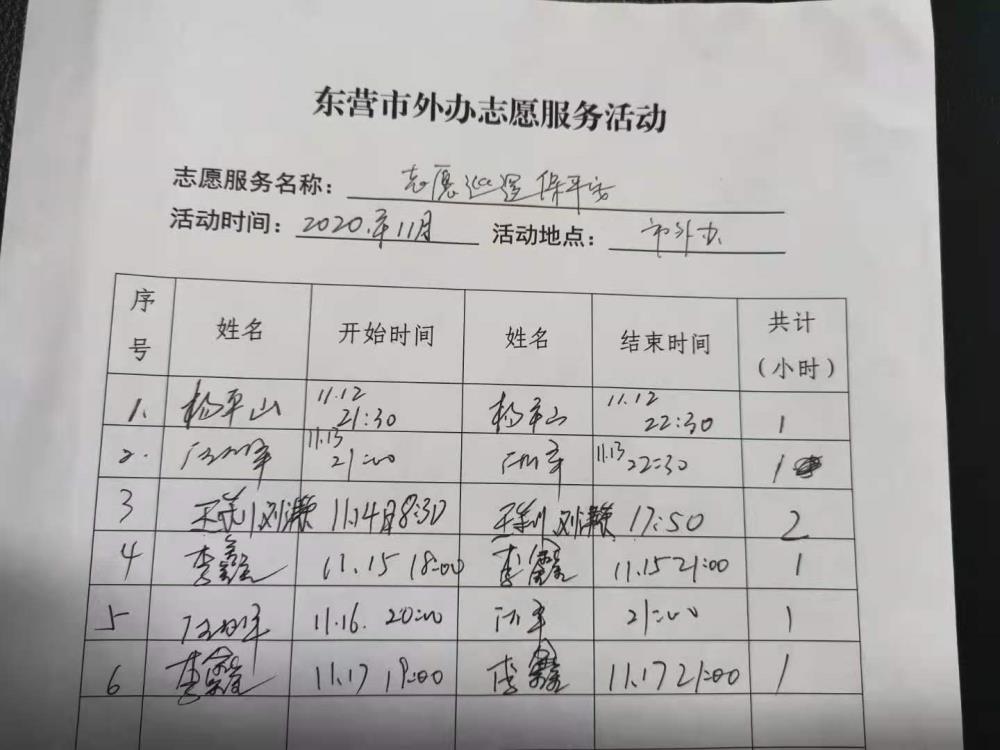 东营市外办志愿服务活动
志愿服务名称： 志愿巡逻保平安
活动时间： 2020.年11月 活动地点： 市外办
序号 姓名 开始时间 姓名 结束时间 共计（小时）
1. 杨平山 11.12 21:30 杨平山 11.12 22:30 1
2. 11.13 21:00 11.13 22:30 1
3 刘灏 11.14 8:30 刘灏 17:50 2
4 李鑫 11.15 18:00 李鑫 11.15 21:00 1
5 11.16. 20:00 21:00 1
6 李鑫 11.17 19:00 李鑫 11.17 21:00 1